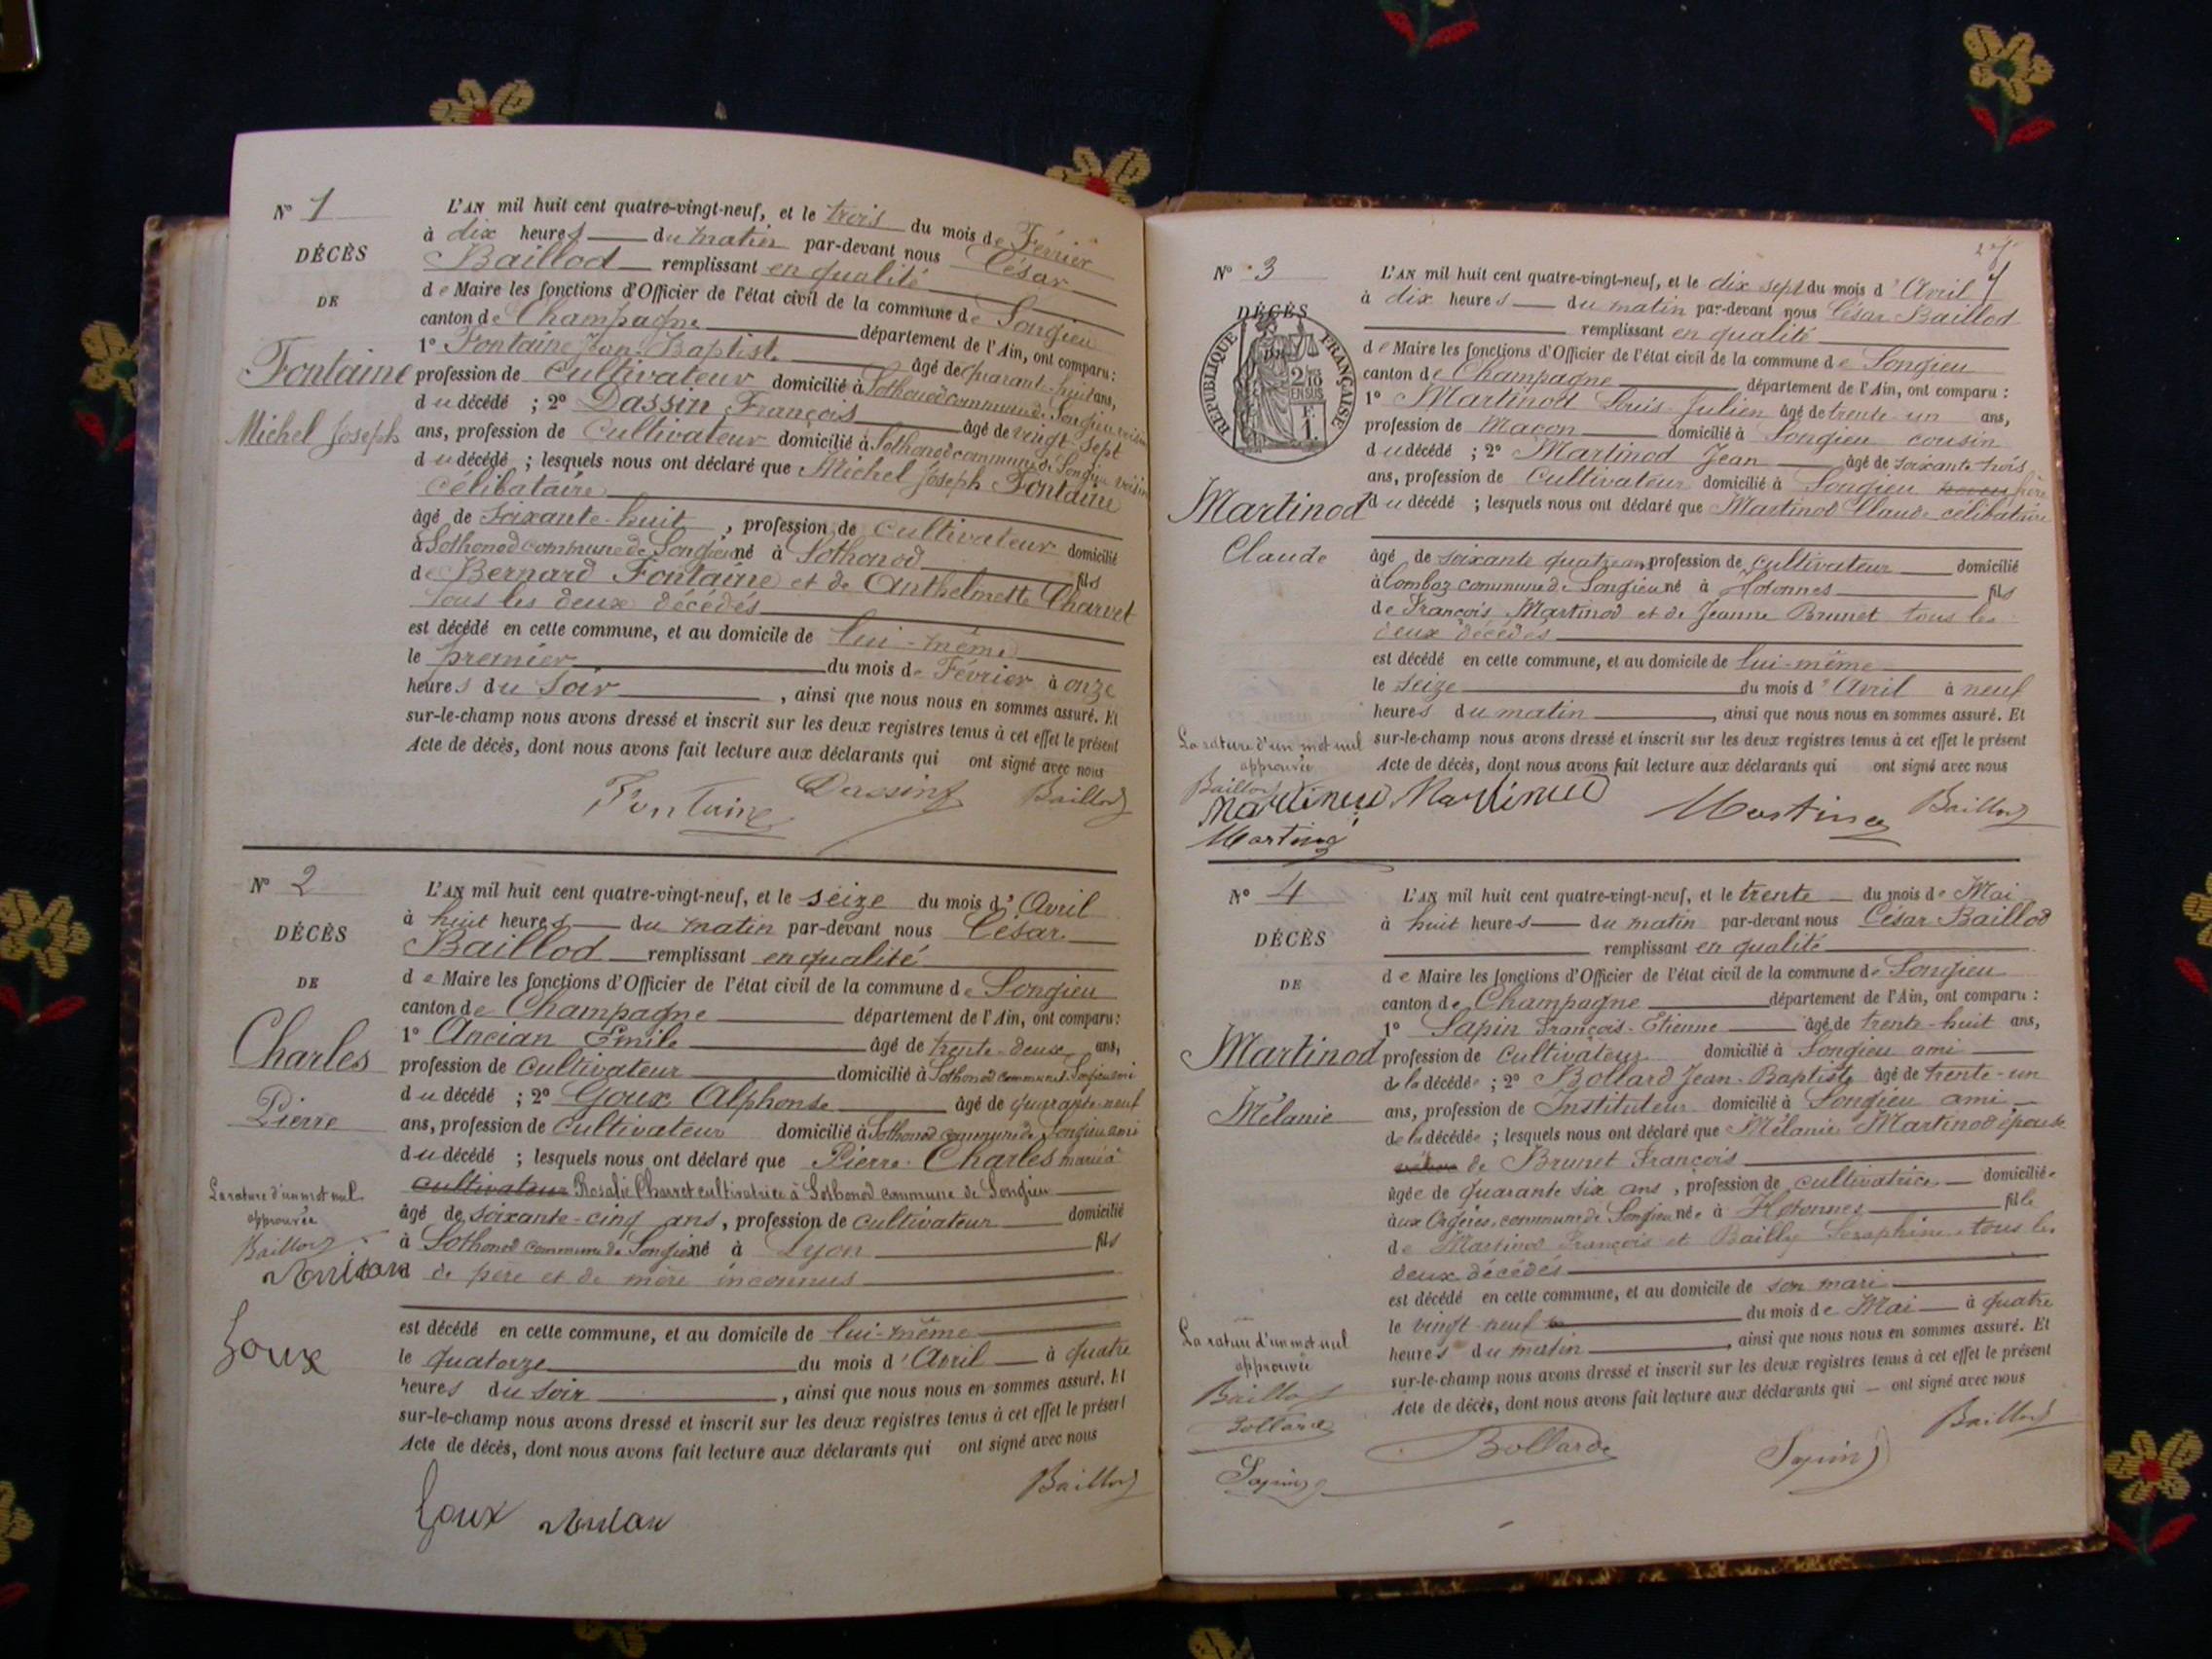 N° 1
DÉCÈS
DE
Fontaine
Michel Joseph
L'AN mil huit cent quatre-vingt-neuf, et le trois du mois de Février
à dix heures du matin par-devant nous César
Baillod remplissant en qualité
de Maire les fonctions d'Officier de l'état civil de la commune de Songieu
canton de Champagne département de l'Ain, ont comparu :
1° Fontaine Jean-Baptiste âgé de quarante-huit ans,
profession de Cultivateur domicilié à Sothonod commune de Songieu voisin
du décédé ; 2° Dassin François âgé de vingt sept
ans, profession de Cultivateur domicilié à Sothonod commune de Songieu voisin
du décédé ; lesquels nous ont déclaré que Michel Joseph Fontaine
Célibataire
âgé de soixante-huit , profession de cultivateur domicilié
à Sothonod commune de Songieu né à Sothonod fils
de Bernard Fontaine et de Anthelmette Charvet
tous les deux décédés
est décédé en cette commune, et au domicile de lui-même
le premier du mois de Février à onze
heures du soir , ainsi que nous nous en sommes assuré. Et
sur-le-champ nous avons dressé et inscrit sur les deux registres tenus à cet effet le présent
Acte de décès, dont nous avons fait lecture aux déclarants qui ont signé avec nous
Fontaine Dassin Baillod
N° 2
DÉCÈS
DE
Charles
Pierre
La rature d'un mot nul
approuvée
Baillod
Goux
L'AN mil huit cent quatre-vingt-neuf, et le seize du mois d'Avril
à huit heures du matin par-devant nous César
Baillod remplissant en qualité
de Maire les fonctions d'Officier de l'état civil de la commune de Songieu
canton de Champagne département de l'Ain, ont comparu :
1° Ancian Émile âgé de trente-deux ans,
profession de Cultivateur domicilié à Sothonod commune de Songieu ami
du décédé ; 2° Goux Alphonse âgé de quarante-neuf
ans, profession de Cultivateur domicilié à Sothonod commune de Songieu ami
du décédé ; lesquels nous ont déclaré que Pierre Charles marié à
cultivateur Rosalie Charvet cultivatrice à Sothonod commune de Songieu
âgé de soixante-cinq ans, profession de cultivateur domicilié
à Sothonod commune de Songieu né à Lyon fils
de père et de mère inconnus
est décédé en cette commune, et au domicile de lui-même
le quatorze du mois d'Avril à quatre
heures du soir , ainsi que nous nous en sommes assuré. Et
sur-le-champ nous avons dressé et inscrit sur les deux registres tenus à cet effet le présent
Acte de décès, dont nous avons fait lecture aux déclarants qui ont signé avec nous
Baillod
Goux
N° 3
DÉCÈS
DE
RÉPUBLIQUE FRANÇAISE
2/10
EN SUS
F.
1.
Martinod
Claude
La rature d'un mot nul
approuvée
Baillod
L'AN mil huit cent quatre-vingt-neuf, et le dix sept du mois d'Avril
à dix heures du matin par-devant nous César Baillod
remplissant en qualité
de Maire les fonctions d'Officier de l'état civil de la commune de Songieu
canton de Champagne département de l'Ain, ont comparu :
1° Martinod Louis Julien âgé de trente-un ans,
profession de Maçon domicilié à Songieu cousin
du décédé ; 2° Martinod Jean âgé de soixante trois
ans, profession de Cultivateur domicilié à Songieu neveu frère
du décédé ; lesquels nous ont déclaré que Martinod Claude célibataire
âgé de soixante quatre ans, profession de cultivateur domicilié
à Lomboz commune de Songieu né à Hotonnes fils
de François Martinod et de Jeanne Brunet tous les
deux décédés
est décédé en cette commune, et au domicile de lui-même
le seize du mois d'Avril à neuf
heures du matin , ainsi que nous nous en sommes assuré. Et
sur-le-champ nous avons dressé et inscrit sur les deux registres tenus à cet effet le présent
Acte de décès, dont nous avons fait lecture aux déclarants qui ont signé avec nous
Martinod Martinod Baillod
N° 4
DÉCÈS
DE
Martinod
Mélanie
La rature d'un mot nul
approuvée
Baillod
Bollard
Sapin
L'AN mil huit cent quatre-vingt-neuf, et le trente du mois de Mai
à huit heures du matin par-devant nous César Baillod
remplissant en qualité
de Maire les fonctions d'Officier de l'état civil de la commune de Songieu
canton de Champagne département de l'Ain, ont comparu :
1° Sapin François-Étienne âgé de trente-huit ans,
profession de Cultivateur domicilié à Songieu ami
de la décédée ; 2° Bollard Jean-Baptiste âgé de trente-un
ans, profession de Instituteur domicilié à Songieu ami
de la décédée ; lesquels nous ont déclaré que Mélanie Martinod épouse
de Brunet François
âgée de quarante six ans , profession de cultivatrice domiciliée
aux Orgères, commune de Songieu née à Hotonnes fille
de Martinod François et Bailly Séraphine tous les
deux décédés
est décédé en cette commune, et au domicile de son mari
le vingt-neuf du mois de Mai à quatre
heures du matin , ainsi que nous nous en sommes assuré. Et
sur-le-champ nous avons dressé et inscrit sur les deux registres tenus à cet effet le présent
Acte de décès, dont nous avons fait lecture aux déclarants qui ont signé avec nous
Bollard Sapin Baillod